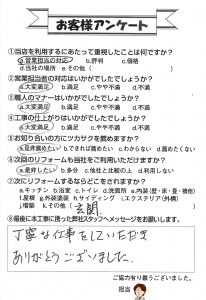 お客様アンケート
①当店を利用するにあたって重視したことは何ですか?
a.営業担当の対応 b.評判 c.価格
d.当社の場所 e.その他(
②営業担当者の対応はいかがでしたでしょうか?
a.大変満足 b.満足 c.やや不満 d.不満
③職人のマナーはいかがでしたでしょうか?
a.大変満足 b.満足 c.やや不満 d.不満
④工事の仕上がりはいかがでしたでしょうか?
a.大変満足 b.満足 c.やや不満 d.不満
⑤お知り合いの方にツカサクを薦めますか?
a.是非薦めたい b.できれば薦めたい c.わからない d.薦めたくない
⑥次回のリフォームも当社をご利用いただけますか?
a.是非したい b.多分 c.他社と比較の上 d.利用しない
⑦次にリフォームするならどこをされますか?
a.キッチン b.浴室 c.トイレ d.洗面所 e.内装(壁・床・畳・襖他)
f.屋根 g.外装塗装 h.サイディング i.エクステリア(外構)
j.増築 k.その他( 玄関
⑧最後に本工事に携った弊社スタッフへメッセージをお願いします。
丁寧な仕事をしていただき
ありがとうございました。
ご協力有り難うございました。
担当